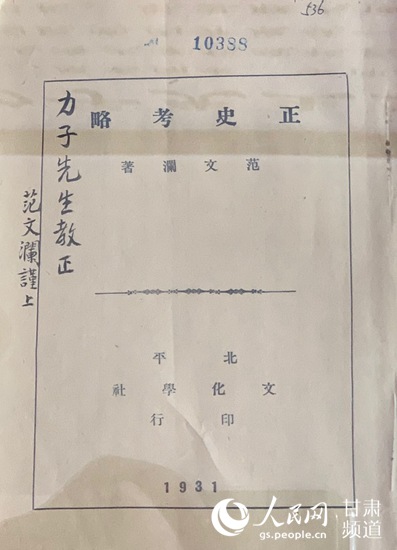 536
10388
正史考略
范文瀾著
力子先生教正
范文瀾謹上
北平
文化學社
印行
1931
人民网 甘肃频道
gs.people.cn